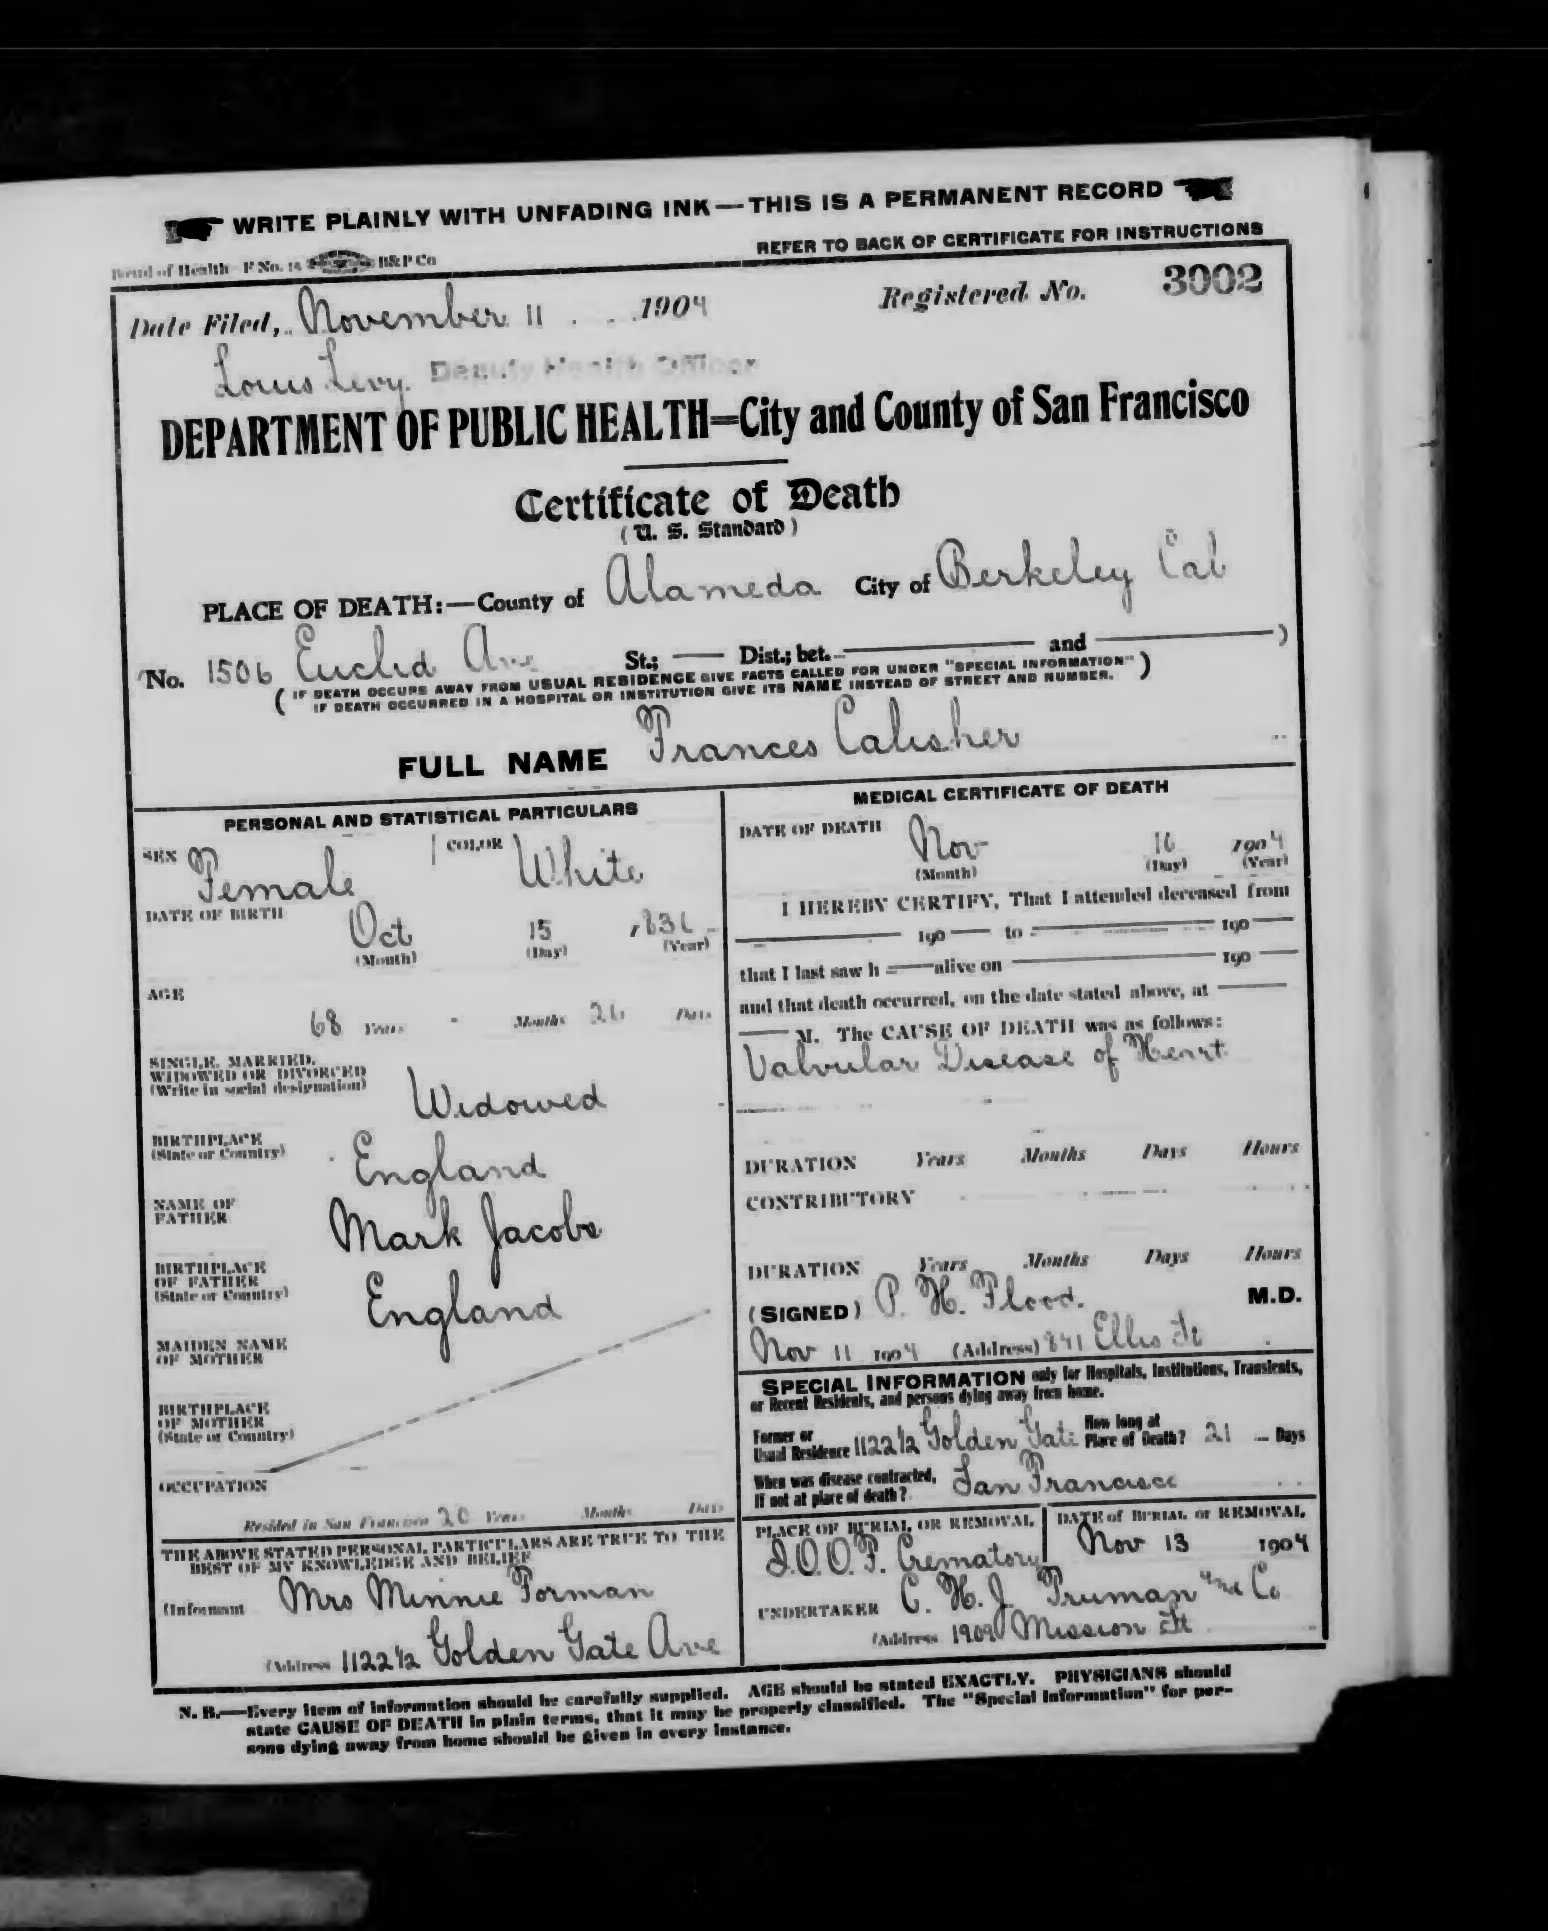 WRITE PLAINLY WITH UNFADING INK—THIS IS A PERMANENT RECORD
REFER TO BACK OF CERTIFICATE FOR INSTRUCTIONS
of Health—F No. 18 B&P Co
Date Filed, November 11 1904 Registered No. 3002
Louis Levy. Deputy Health Officer
DEPARTMENT OF PUBLIC HEALTH=City and County of San Francisco
Certificate of Death
(U. S. Standard)
PLACE OF DEATH:—County of Alameda City of Berkeley Cal
No. 1506 Euclid Ave St.; — Dist.; bet. — and — )
( IF DEATH OCCURS AWAY FROM USUAL RESIDENCE GIVE FACTS CALLED FOR UNDER "SPECIAL INFORMATION" )
IF DEATH OCCURRED IN A HOSPITAL OR INSTITUTION GIVE ITS NAME INSTEAD OF STREET AND NUMBER.
FULL NAME Frances Calisher
PERSONAL AND STATISTICAL PARTICULARS
SEX Female COLOR White
DATE OF BIRTH Oct 15 1836
(Month) (Day) (Year)
AGE
68 Years - Months 26 Days
SINGLE, MARRIED,
WIDOWED OR DIVORCED
(Write in social designation) Widowed
BIRTHPLACE
(State or Country) England
NAME OF
FATHER Mark Jacobs
BIRTHPLACE
OF FATHER
(State or Country) England
MAIDEN NAME
OF MOTHER
BIRTHPLACE
OF MOTHER
(State or Country)
OCCUPATION
Resided in San Francisco 20 Years Months Days
THE ABOVE STATED PERSONAL PARTICULARS ARE TRUE TO THE
BEST OF MY KNOWLEDGE AND BELIEF
(Informant Mrs Minnie Forman
(Address 1122½ Golden Gate Ave
MEDICAL CERTIFICATE OF DEATH
DATE OF DEATH Nov 1904
(Month) (Day) (Year)
I HEREBY CERTIFY, That I attended deceased from
— 190— to — 190—
that I last saw h—alive on — 190—
and that death occurred, on the date stated above, at —
— M. The CAUSE OF DEATH was as follows:
Valvular Disease of Heart
DURATION Years Months Days Hours
CONTRIBUTORY
DURATION Years Months Days Hours
(SIGNED) P. H. Flood. M.D.
Nov 11 1904 (Address) 841 Ellis St
SPECIAL INFORMATION only for Hospitals, Institutions, Transients,
or Recent Residents, and persons dying away from home.
Former or
Usual Residence 1122½ Golden Gate How long at
Place of Death? 21 Days
When was disease contracted,
If not at place of death? San Francisco
PLACE OF BURIAL OR REMOVAL DATE of BURIAL or REMOVAL
I.O.O.F. Crematory Nov 13 1904
UNDERTAKER C. H. J. Truman and Co
(Address 1909 Mission St
N. B.—Every item of information should be carefully supplied. AGE should be stated EXACTLY. PHYSICIANS should
state CAUSE OF DEATH in plain terms, that it may be properly classified. The "Special Information" for per-
sons dying away from home should be given in every instance.